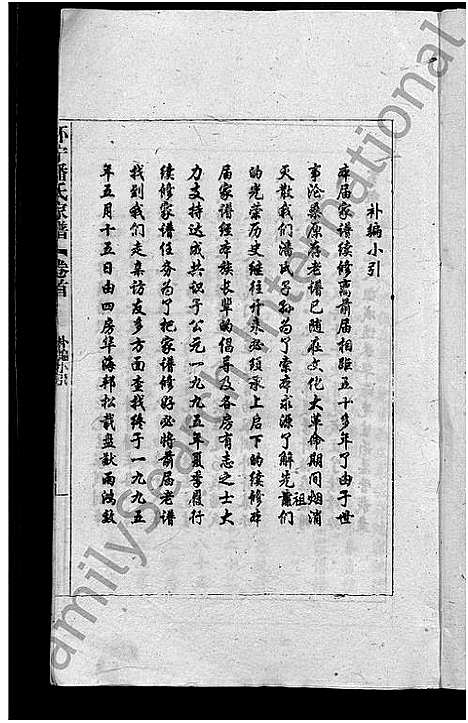 补编小引
本届家谱续修离前届相距五十多年了由于世
事沧桑原存老谱已随在文化大革命期间烟消
灭散我们潘氏子孙为了索本求源了解先祖们
的光荣历史继往开来必须承上启下的续修本
届家谱经本族长辈的倡导及各房有志之士大
力支持达成共识于公元一九九五年夏季履行
续修家谱任务为了把家谱修好必将前届老谱
找到我们走亲访友多方面查找终于一九九五
年五月十五日由四房华海邦松载盘献两鸿毅
怀宁潘氏家谱
卷首
补编小引
FamilySearch International